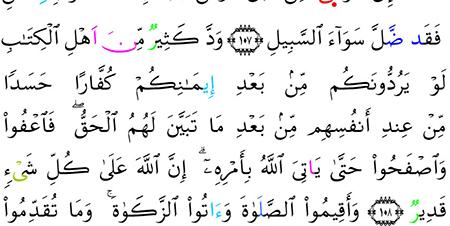 فَقَد ضَّلَّ سَوَآءَ اَ۬لسَّبِيلِ ١٠٧ وَدَّ كَثِيرٌ مِّنَ اَهْلِ اِ۬لْكِتَٰبِ
لَوْ يَرُدُّونَكُم مِّنۢ بَعْدِ إِيمَٰنِكُمْ كُفَّارًا حَسَدًا
مِّنْ عِندِ أَنفُسِهِم مِّنۢ بَعْدِ مَا تَبَيَّنَ لَهُمُ اُ۬لْحَقُّۖ فَاعْفُواْ
وَاصْفَحُواْ حَتَّىٰ يَاتِىَ اَ۬للَّهُ بِأَمْرِهِۦٓۗ إِنَّ اَ۬للَّهَ عَلَىٰ كُلِّ شَىْءٍ
قَدِيرٌ ١٠٨ وَأَقِيمُواْ اُ۬لصَّلَوٰةَ وَءَاتُواْ اُ۬لزَّكَوٰةَۚ وَمَا تُقَدِّمُواْ